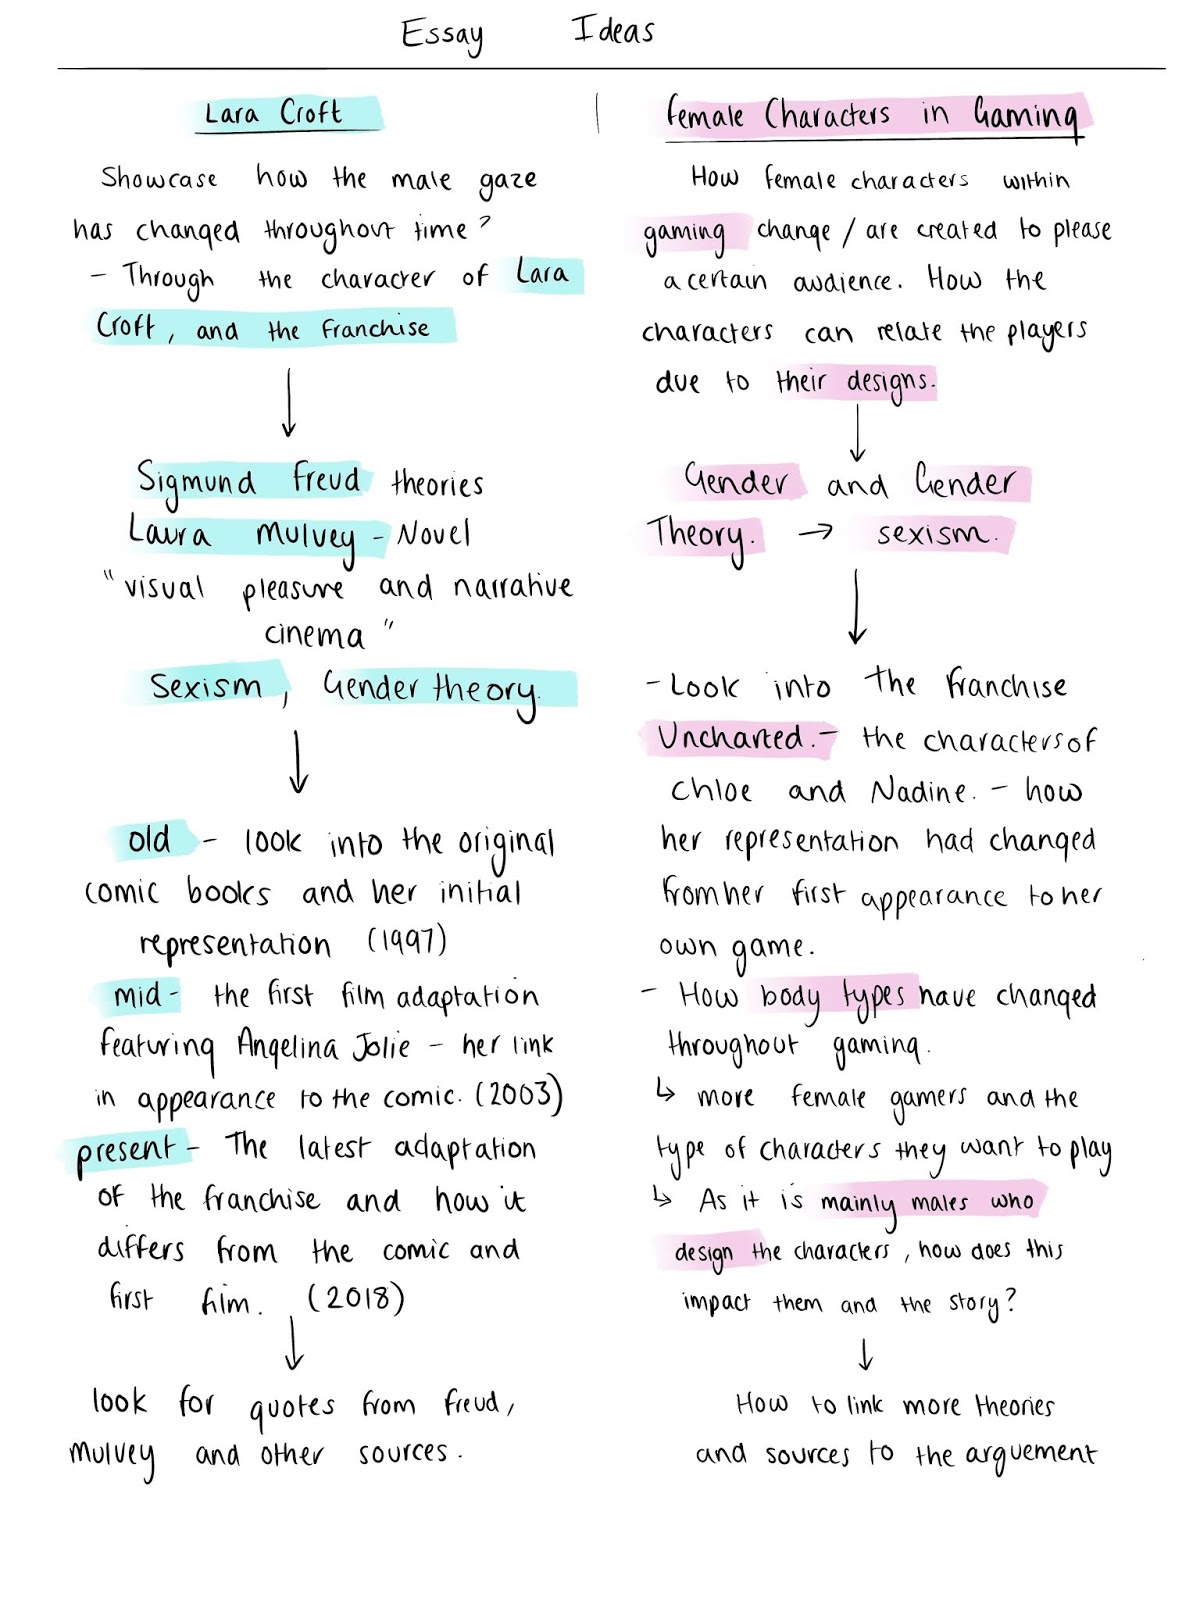 Essay Ideas
Lara Croft
Showcase how the male gaze
has changed throughout time?
- Through the character of Lara
Croft, and the franchise
Sigmund Freud theories
Laura Mulvey - Novel
"visual pleasure and narrative
cinema"
Sexism, Gender theory.
old - look into the original
comic books and her initial
representation (1997)
mid - the first film adaptation
featuring Angelina Jolie - her link
in appearance to the comic. (2003)
present - The latest adaptation
of the franchise and how it
differs from the comic and
first film. (2018)
look for quotes from freud,
mulvey and other sources.
female Characters in Gaming
How female characters within
gaming change / are created to please
a certain audience. How the
characters can relate the players
due to their designs.
Gender and Gender
Theory. → sexism.
- Look into the franchise
Uncharted. - the characters of
Chloe and Nadine. - how
her representation had changed
from her first appearance to her
own game.
- How body types have changed
throughout gaming.
↳ more female gamers and the
type of characters they want to play
↳ As it is mainly males who
design the characters, how does this
impact them and the story?
How to link more theories
and sources to the arguement